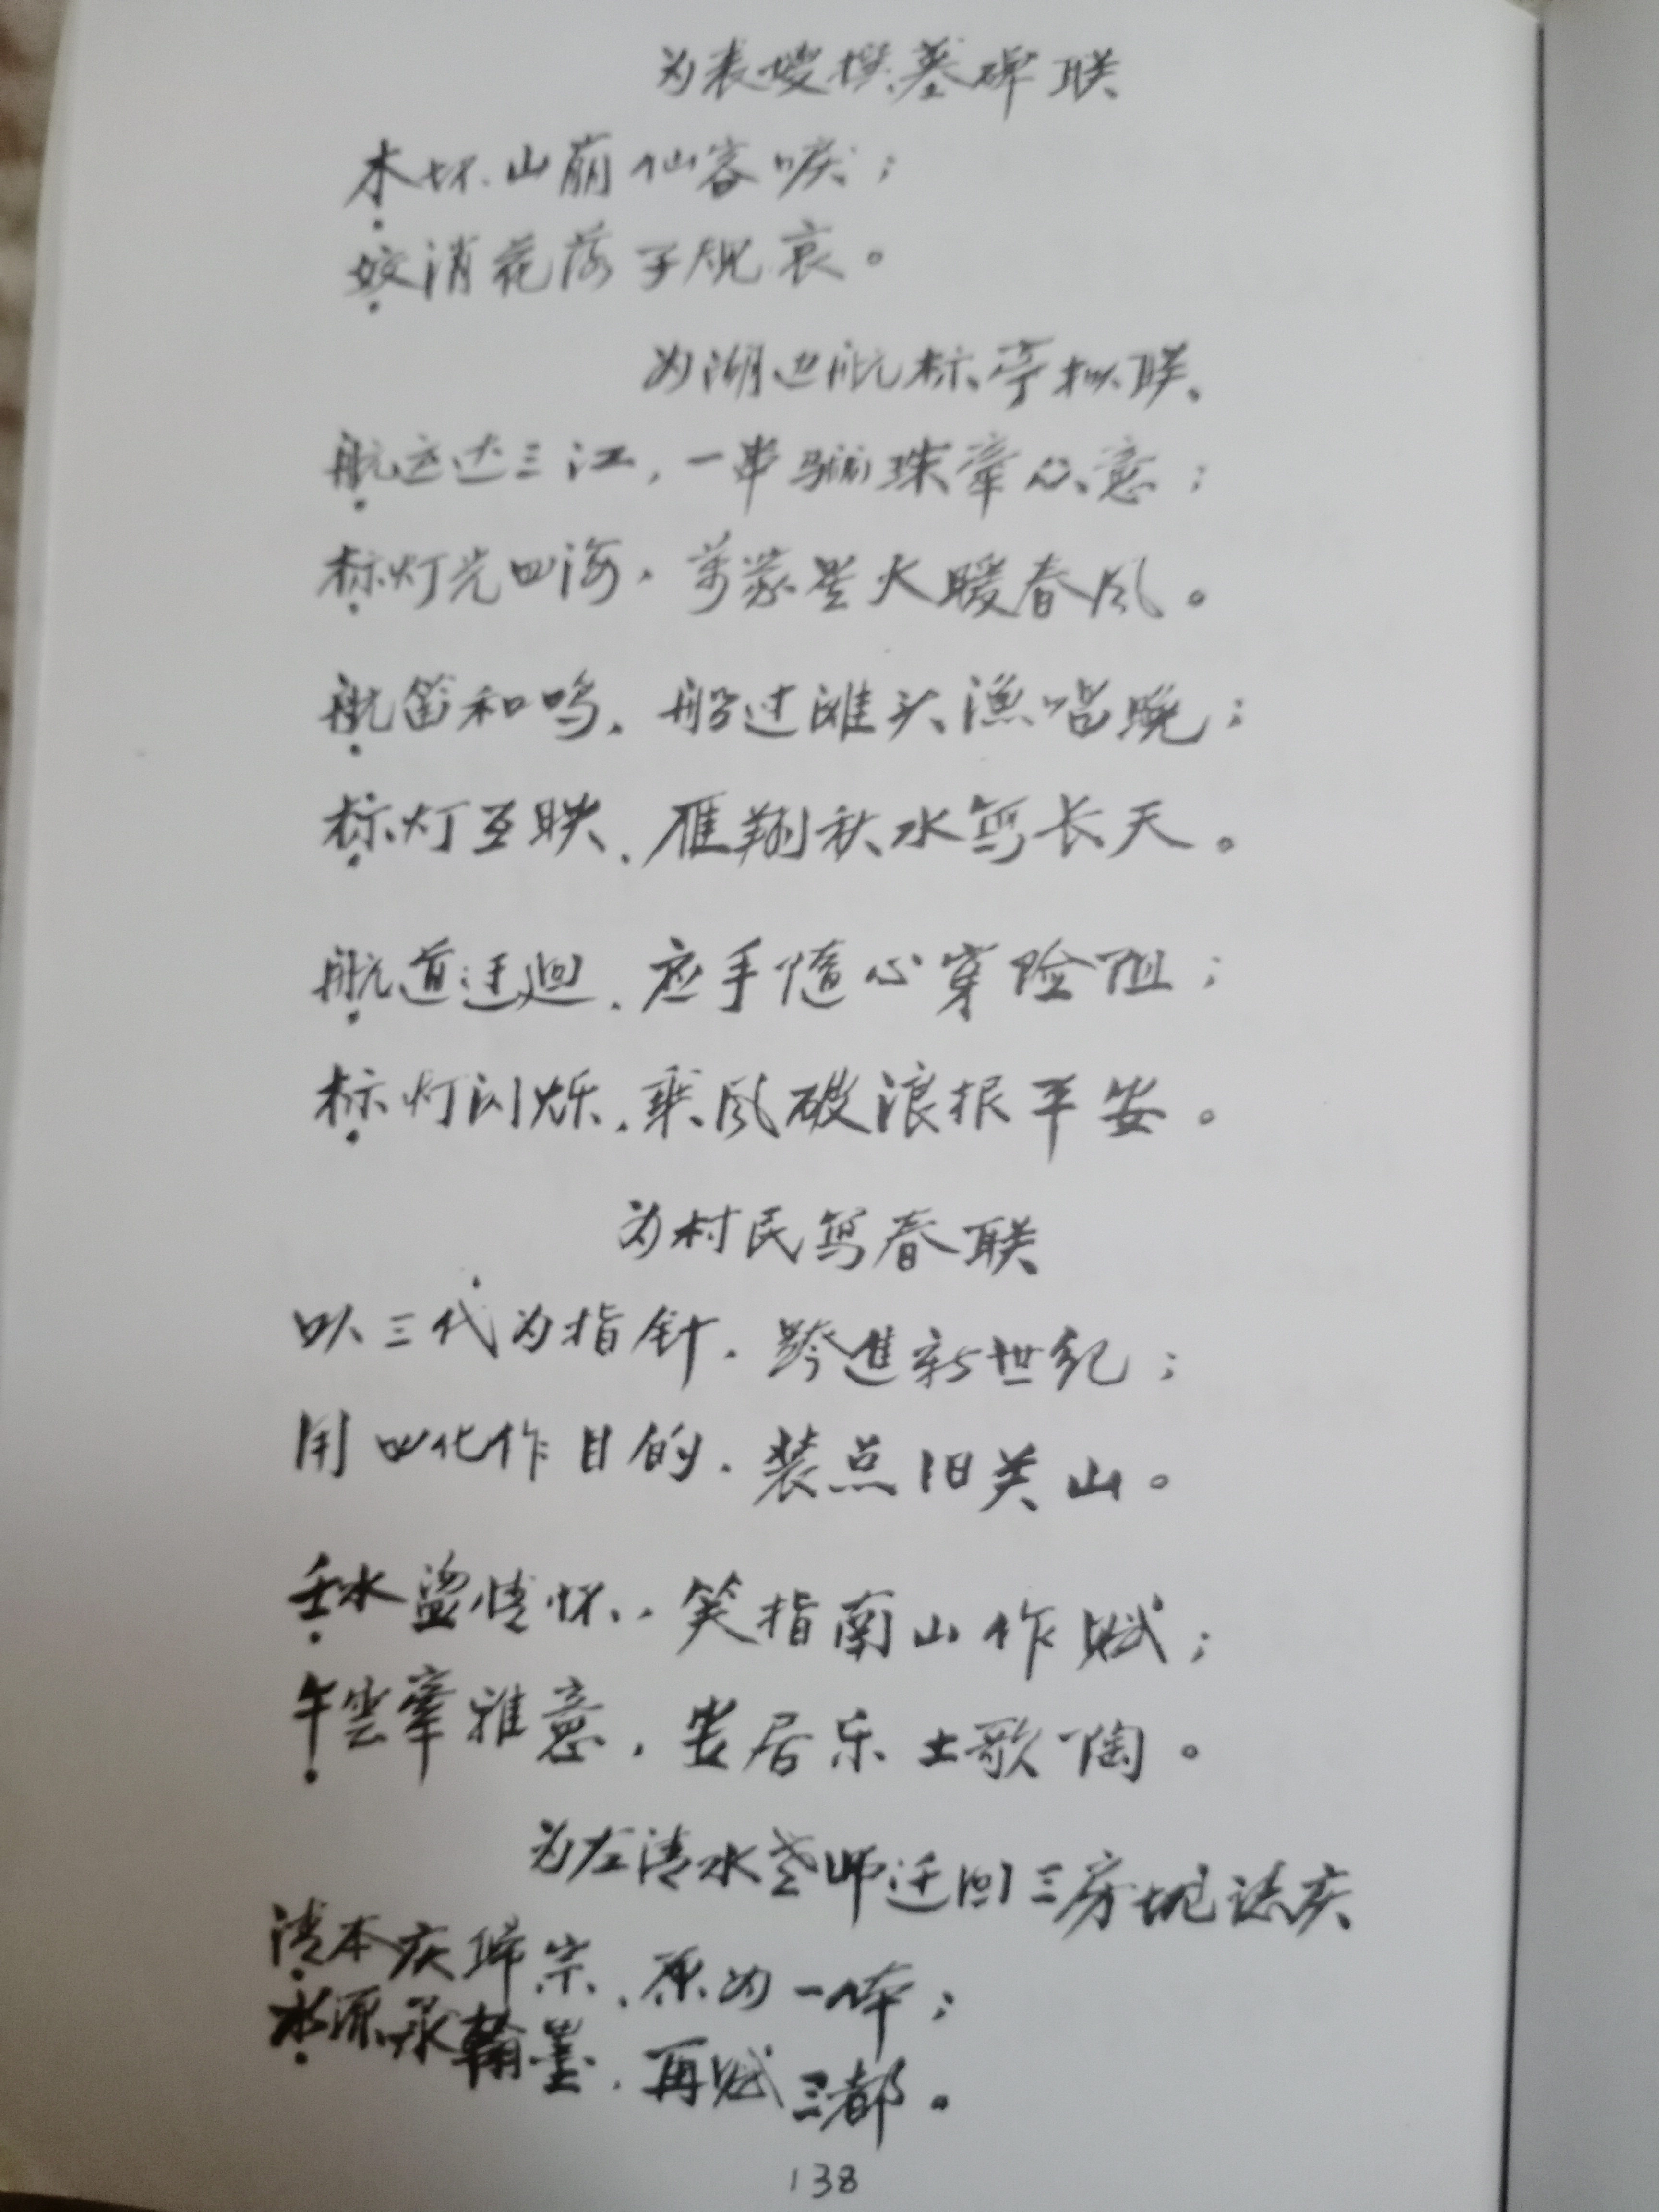 为表嫂撰墓碑联
木坏山崩仙客唳；
姣消花落子规哀。
为湖边航标亭拟联
航运达三江，一串骊珠牵众意；
标灯光四海，万家星火暖春风。
航笛和鸣，船过滩头渔唱晚；
标灯互映，雁翔秋水写长天。
航道迂迴，应手随心穿险阻；
标灯闪烁，乘风破浪报平安。
为村民写春联
以三代为指针，跨進新世纪；
用四化作目的，装点旧关山。
壬水盪情怀，笑指南山作赋；
午雲牵雅意，安居乐土歌陶。
为左清水老师迁回三房坭誌庆
清本庆归宗，原为一体；
水源承翰墨，再赋三都。
138